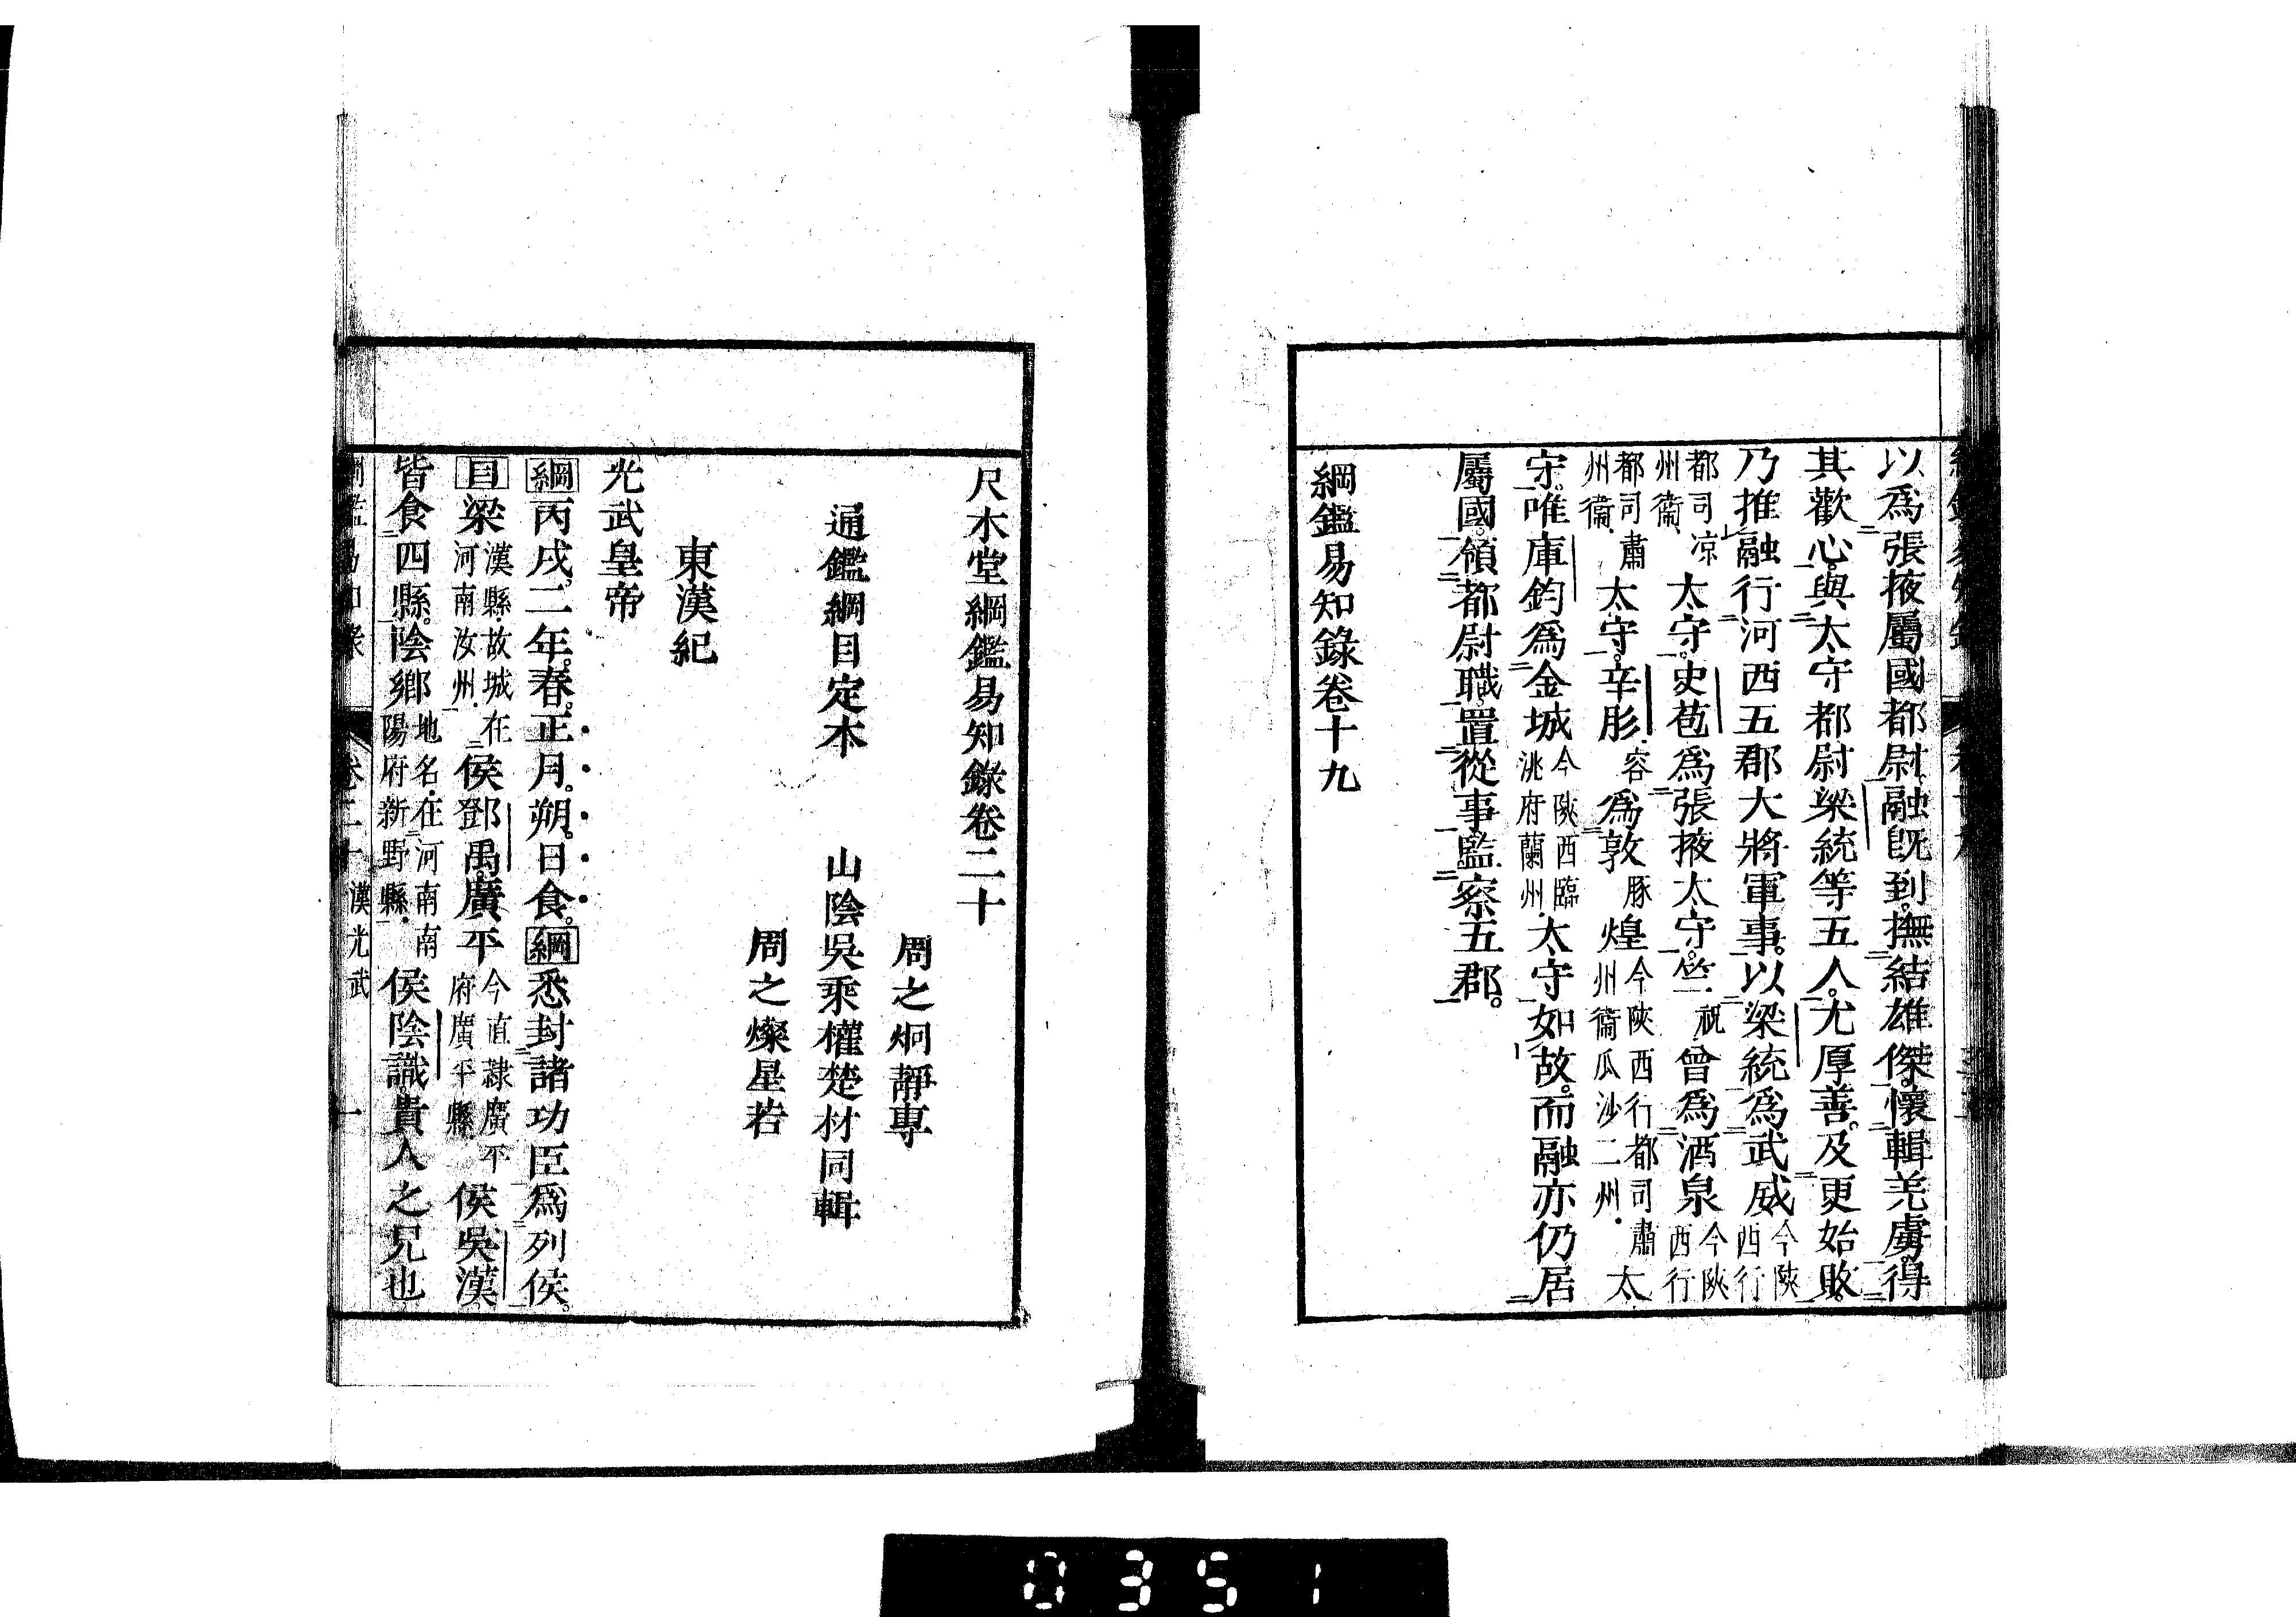 以爲張掖屬國都尉。融既到。撫結雄傑。懷輯羌虜。得
其歡心。與太守都尉梁統等五人。尤厚善。及更始敗。
乃推融行河西五郡大將軍事。以梁統爲武威今陝西行
都司凉州衞、太守。史苞爲張掖太守。竺祝曾爲酒泉今陝西行
都司肅州衞、太守。辛肜容爲敦豚煌今陝西行都司肅州衞瓜沙二州、太
守。唯庫鈞爲金城今陝西臨洮府蘭州、太守如故。而融亦仍居
屬國。領都尉職。置從事監察五郡。
綱鑑易知錄卷十九
尺木堂綱鑑易知錄卷二十
周之炯靜專
通鑑綱目定本 山陰吳乘權楚材同輯
周之燦星若
東漢紀
光武皇帝
綱丙戌、二年。春。正月。朔。日食。綱悉封諸功臣爲列侯。
目梁漢縣、故城在河南汝州、侯鄧禹。廣平今直隷廣平府廣平縣、侯吳漢。
皆食四縣。陰鄉地名、在河南南陽府新野縣、侯陰識。貴人之兄也
漢光武 一
0351